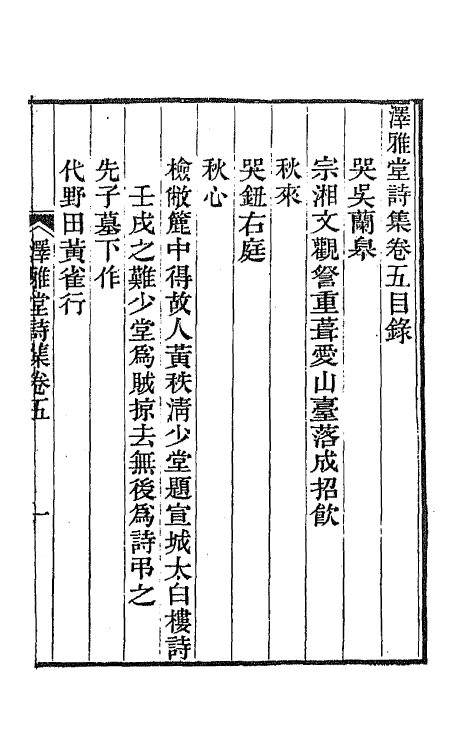 澤雅堂詩集卷五目錄
哭吳蘭皋
宗湘文觀詧重葺愛山臺落成招飲
秋來
哭鈕右庭
秋心
檢敝簏中得故人黃秩清少堂題宣城太白樓詩
壬戌之難少堂爲賊掠去無後爲詩弔之
先子墓下作
代野田黃雀行
澤雅堂詩集卷五
一